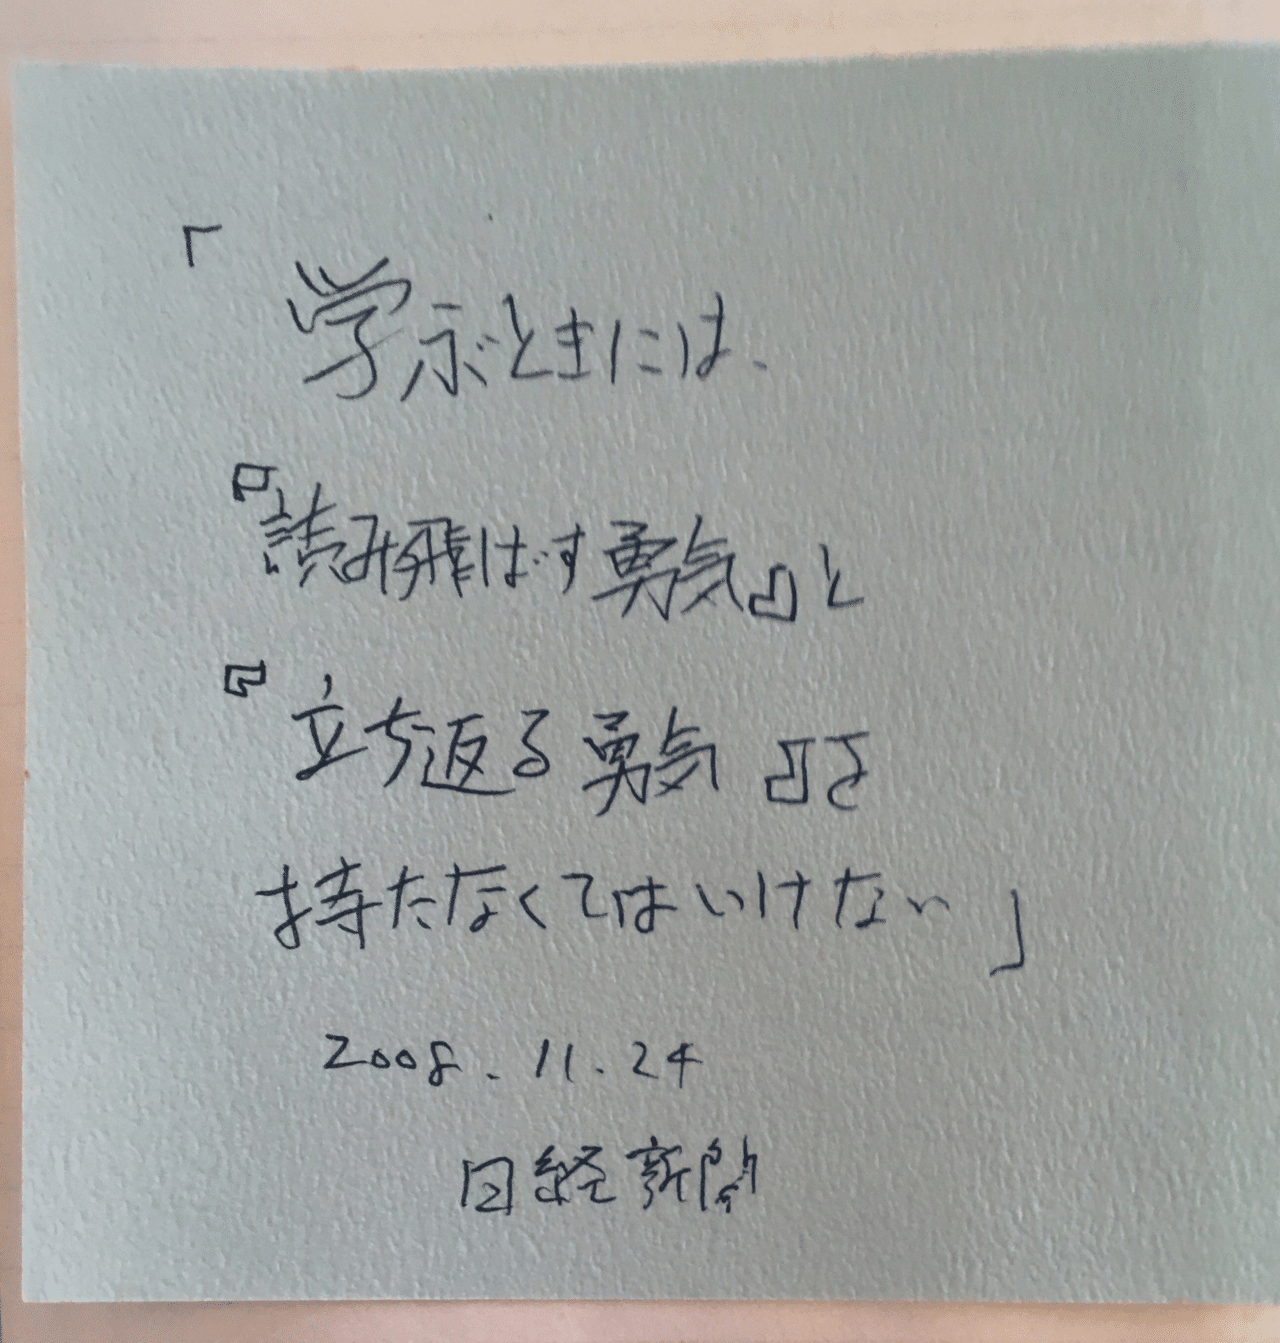 「学ぶときには、
『読み飛ばす勇気』と
『立ち返る勇気』を
持たなくてはいけない」
2008.11.24
日経新聞